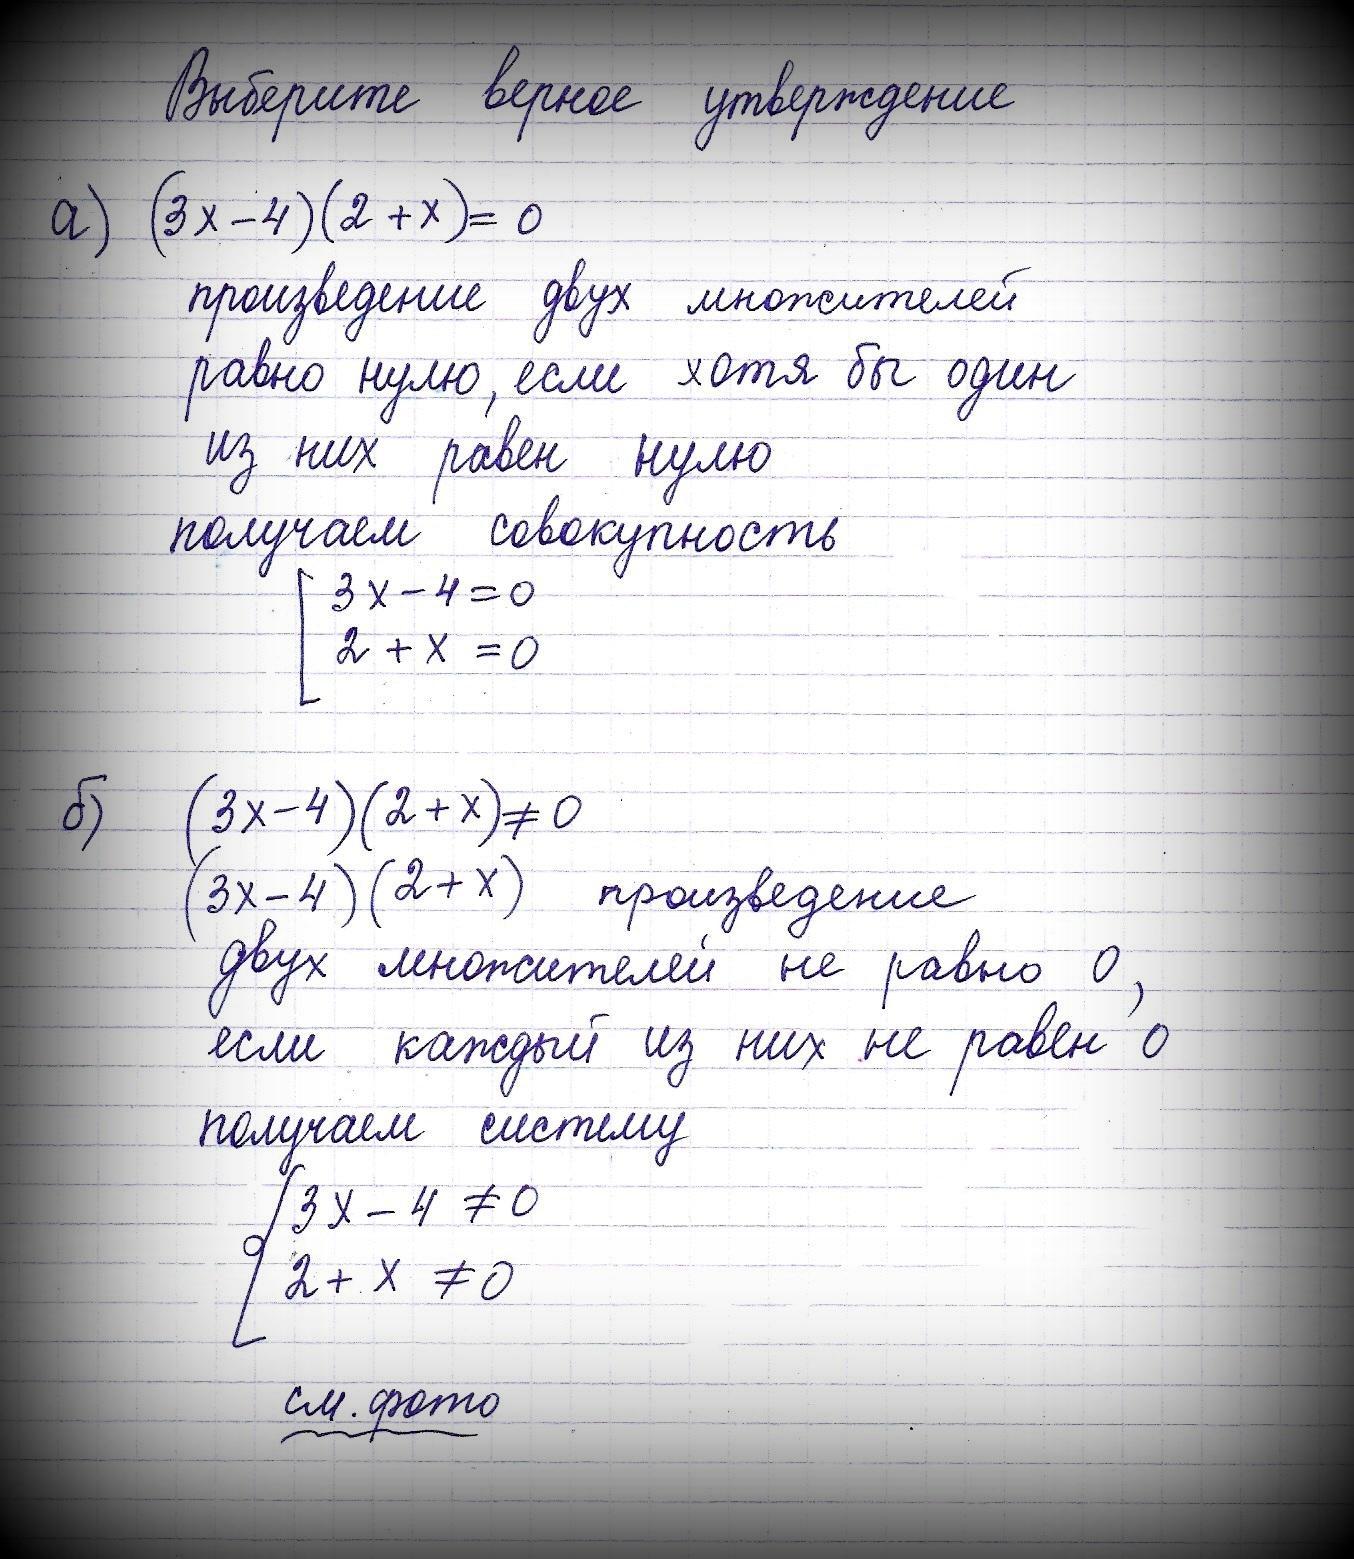 Выберите верное утверждение
а) (3x-4)(2+x)=0
произведение двух множителей
равно нулю, если хотя бы один
из них равен нулю
получаем совокупность
[3x-4=0
2+x=0
б) (3x-4)(2+x)≠0
(3x-4)(2+x) произведение
двух множителей не равно 0,
если каждый из них не равен 0
получаем систему
{3x-4≠0
2+x≠0
см. фото